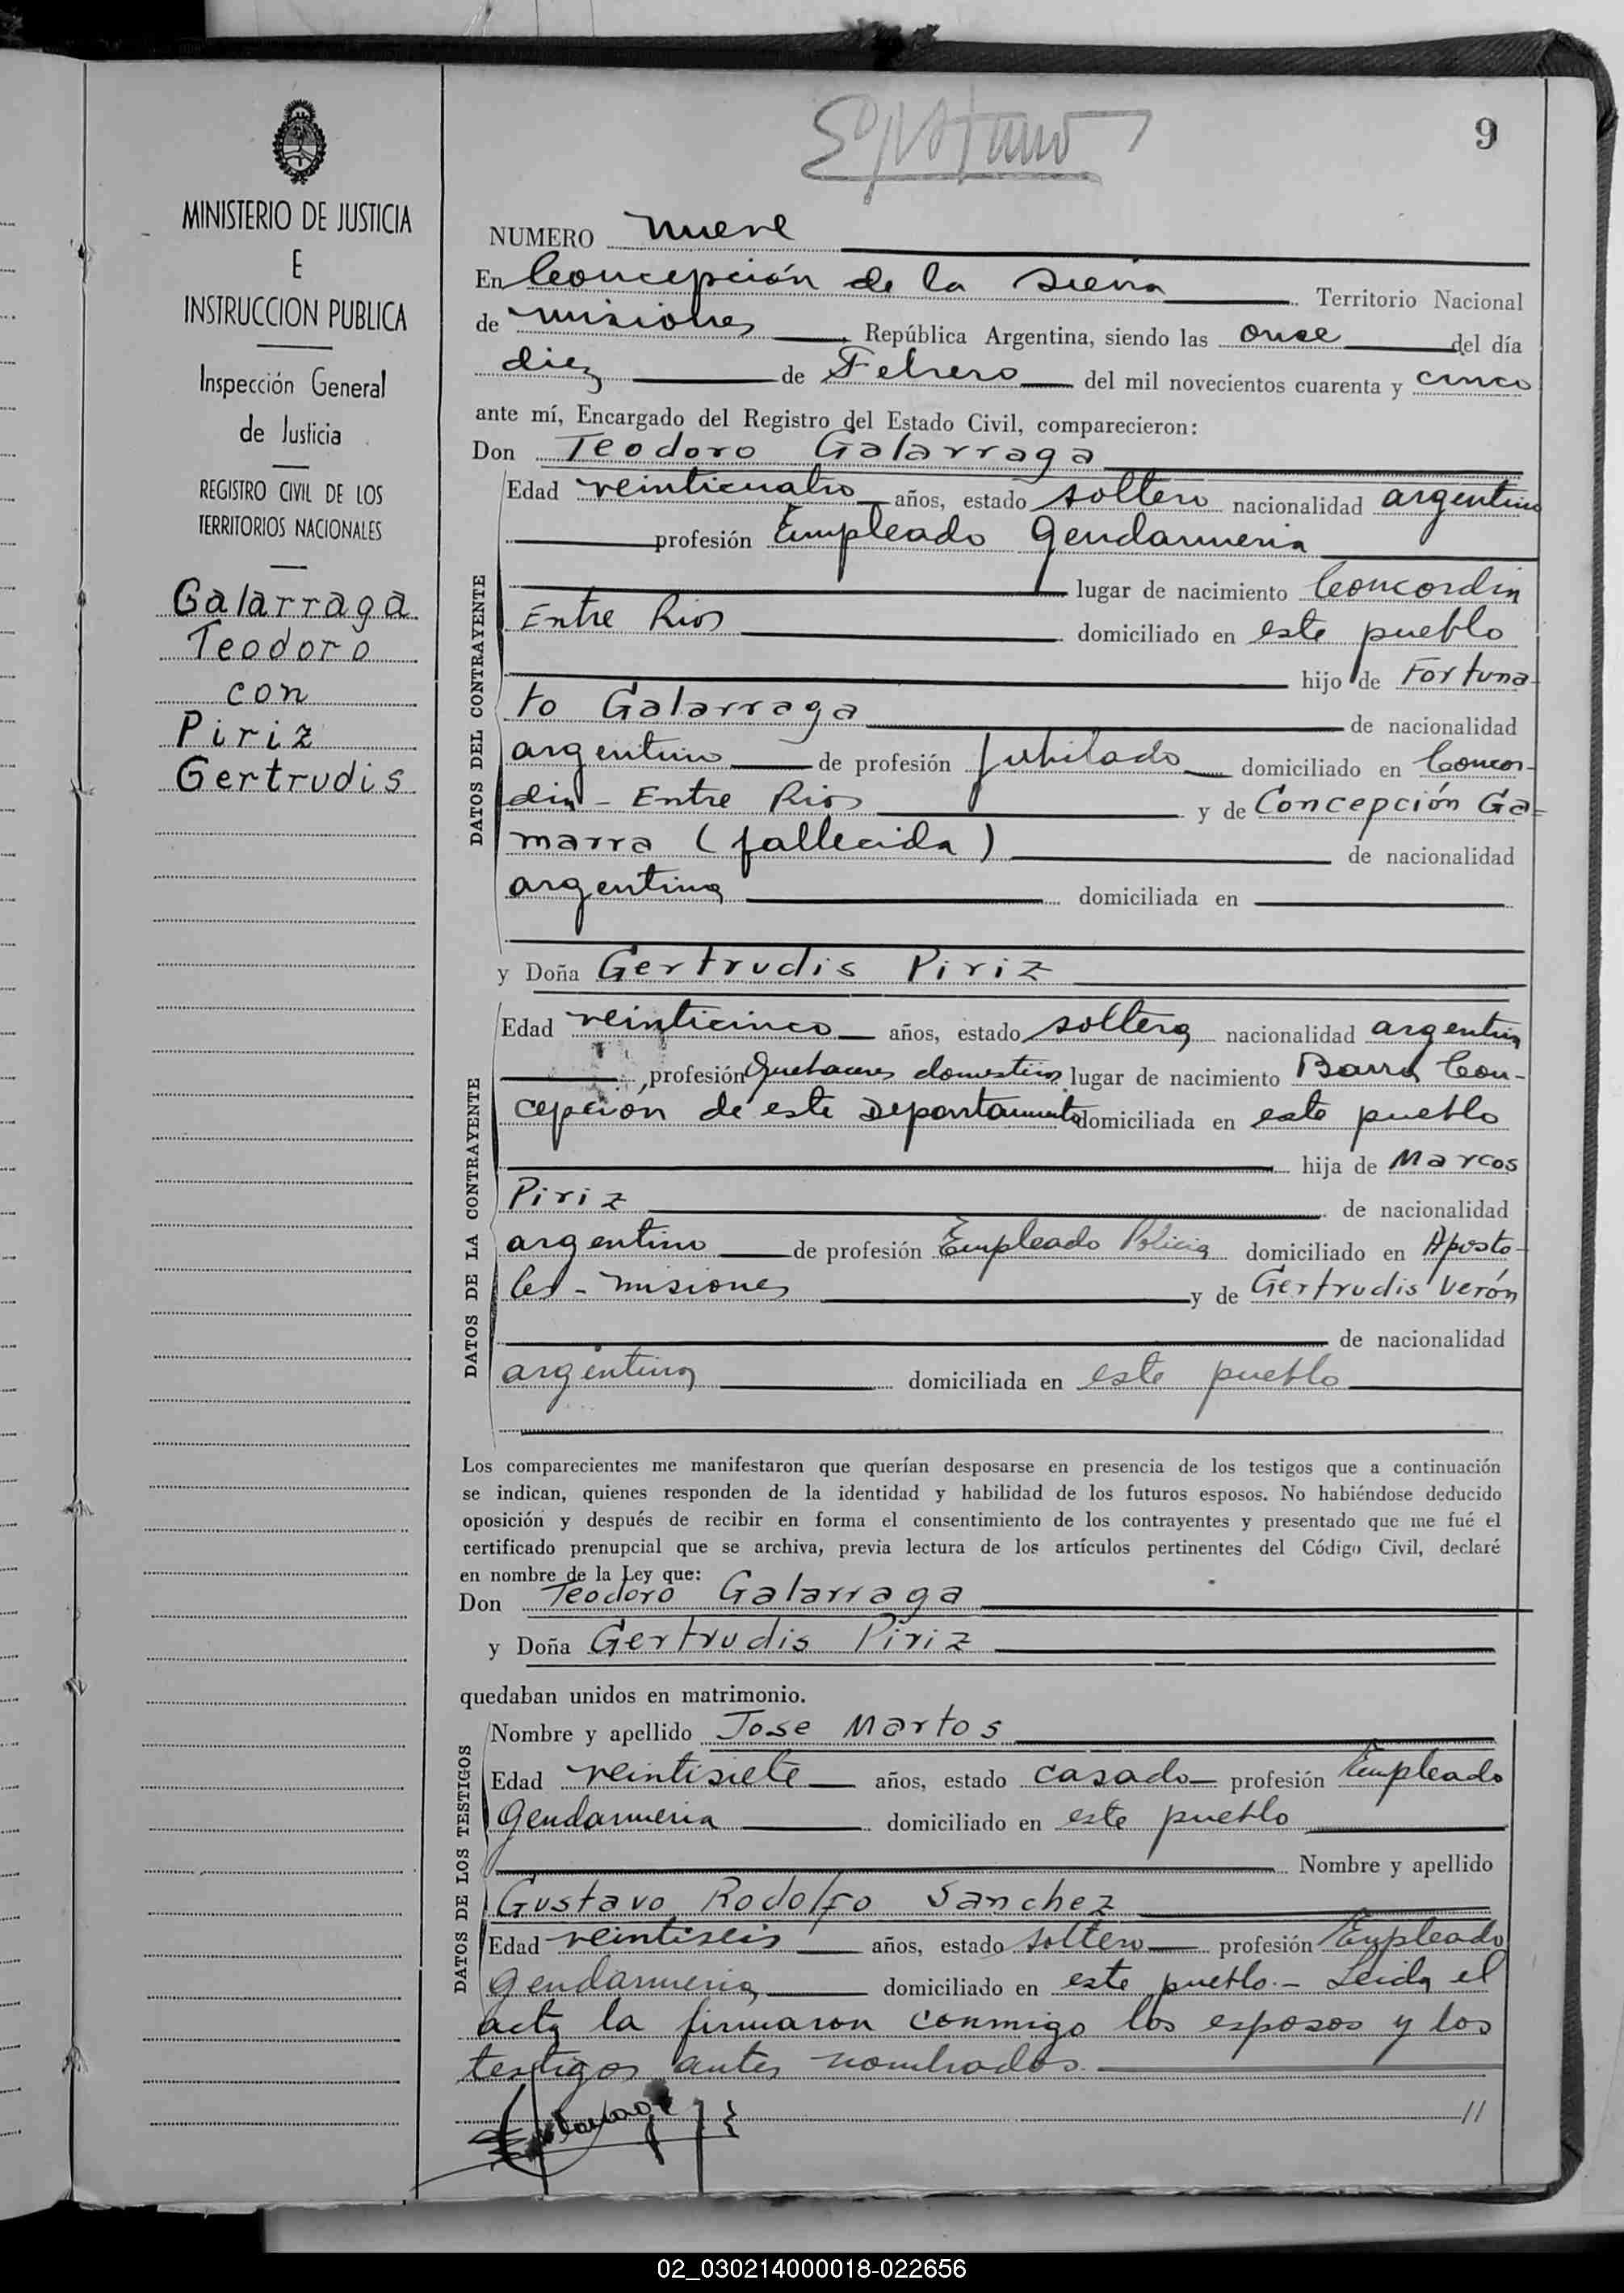 9
MINISTERIO DE JUSTICIA
E
INSTRUCCION PUBLICA
Inspección General
de Justicia
REGISTRO CIVIL DE LOS
TERRITORIOS NACIONALES
Galarraga
Teodoro
con
Piriz
Gertrudis
NUMERO nueve
En Concepción de la Sierra Territorio Nacional
de Misiones, República Argentina, siendo las once del día
diez de Febrero del mil novecientos cuarenta y cinco
ante mí, Encargado del Registro del Estado Civil, comparecieron:
Don Teodoro Galarraga
DATOS DEL CONTRAYENTE
Edad veinticuatro años, estado soltero nacionalidad argentino
profesión Empleado Gendarmeria
lugar de nacimiento Concordia
Entre Rios domiciliado en este pueblo
hijo de Fortuna-
to Galarraga de nacionalidad
argentino de profesión jubilado domiciliado en Concor-
dia - Entre Rios y de Concepción Ga=
marra (fallecida) de nacionalidad
argentina domiciliada en
y Doña Gertrudis Piriz
DATOS DE LA CONTRAYENTE
Edad veinticinco años, estado soltera nacionalidad argentina
, profesión Quehaceres domesticos lugar de nacimiento Barra Con-
cepción de este Departamento domiciliada en este pueblo
hija de Marcos
Piriz de nacionalidad
argentino de profesión Empleado Policia domiciliado en Aposto-
les - Misiones y de Gertrudis Verón
de nacionalidad
argentina domiciliada en este pueblo
Los comparecientes me manifestaron que querían desposarse en presencia de los testigos que a continuación
se indican, quienes responden de la identidad y habilidad de los futuros esposos. No habiéndose deducido
oposición y después de recibir en forma el consentimiento de los contrayentes y presentado que me fué el
certificado prenupcial que se archiva, previa lectura de los artículos pertinentes del Código Civil, declaré
en nombre de la Ley que:
Don Teodoro Galarraga
y Doña Gertrudis Piriz
quedaban unidos en matrimonio.
DATOS DE LOS TESTIGOS
Nombre y apellido Jose Martos
Edad veintisiete años, estado casado profesión Empleado
Gendarmeria domiciliado en este pueblo
Nombre y apellido
Gustavo Rodolfo Sanchez
Edad veintiseis años, estado soltero profesión Empleado
gendarmeria domiciliado en este pueblo.- Leida el
acta la firmaron conmigo los esposos y los
testigos antes nombrados.
//
02_030214000018-022656